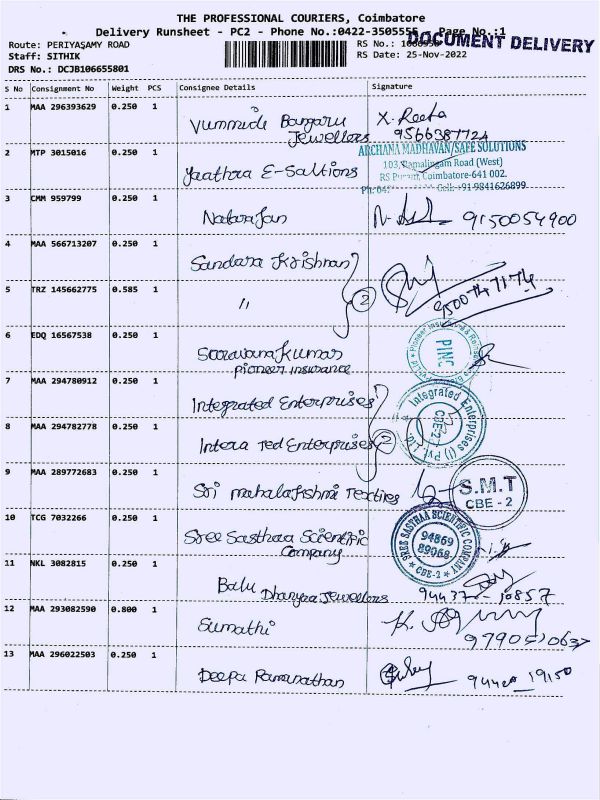 THE PROFESSIONAL COURIERS, Coimbatore
Delivery Runsheet - PC2 - Phone No.:0422-3505555 Page No.:1
DOCUMENT DELIVERY
Route: PERIYASAMY ROAD
RS No.:
Staff: SITHIK
RS Date: 25-Nov-2022
DRS No.: DCJB106655801
S No Consignment No Weight PCS Consignee Details Signature
1 MAA 296393629 0.250 1 Vummidi Bangaru
Jewellers
X. Reeta
9566387724
2 MTP 3015016 0.250 1 Yaathra E-Saltions
ARCHANA MADHAVAN/SAFE SOLUTIONS
103, Ramalingam Road (West)
RS Puram, Coimbatore-641 002.
Cell: +91 9841626899
3 CMM 959799 0.250 1 Natarajan 9150054900
4 MAA 566713207 0.250 1 Sundara Krishnan
5 TRZ 145662775 0.585 1 " 2
9500747174
6 EDQ 16567538 0.250 1 Saravana Kumar
Pioneer insurance
PINC
7 MAA 294780912 0.250 1 Integrated Enterprises
Integrated Enterprises (I) Pvt. Ltd.
CBE-2
8 MAA 294782778 0.250 1 Intera ted Enterprises 2
9 MAA 289772683 0.250 1 Sri mahalakshmi Textiles
S.M.T
CBE - 2
10 TCG 7032266 0.250 1 Sree Sasthaa Scientific
Company
SREE SASTHAA SCIENTIFIC COMPANY
94869
89068
CBE-2
11 NKL 3082815 0.250 1 Balu Dhanyaa Jewellers
94437-10857
12 MAA 293082590 0.800 1 Sumathi
9790510637
13 MAA 296022503 0.250 1 Deepa Ramanathan
94420 19150